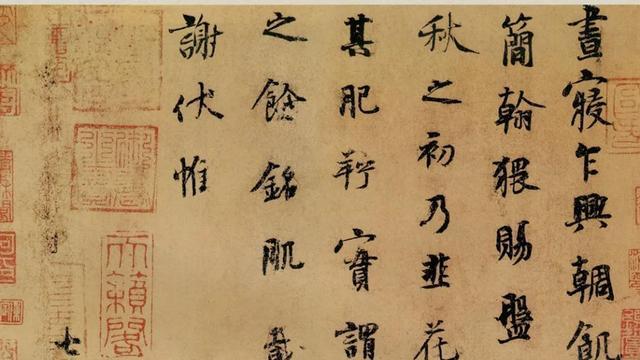 晝寢乍興輖飢
簡翰猥賜盤
秋之初乃韭花
其肥羜實謂
之餘銘肌載
謝伏惟
七
天籟閣